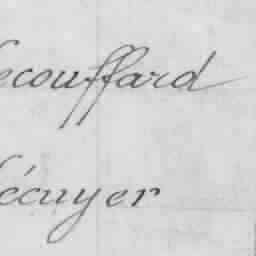 Lecouffard
Lécuyer